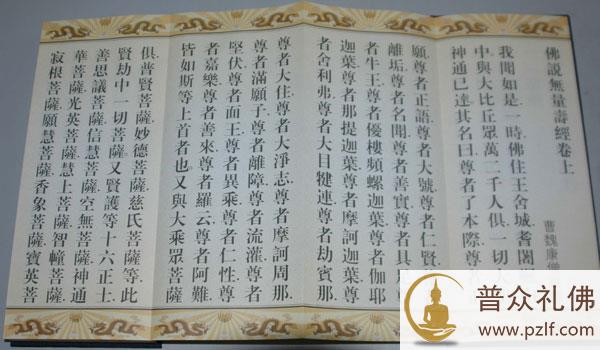 佛說無量壽經卷上
曹魏康僧
我聞如是一時佛住王舍城耆闍
中與大比丘眾萬二千人俱一切大
神通已達其名曰尊者了本際尊
願尊者正語尊者大號尊者仁賢
離垢尊者名聞尊者善實尊者具
者牛王尊者優樓頻螺迦葉尊者伽耶
迦葉尊者那提迦葉尊者摩訶迦葉尊
者舍利弗尊者大目犍連尊者劫賓那
尊者大住尊者大淨志尊者摩訶周那
尊者滿願子尊者離障尊者流灌尊者
堅伏尊者面王尊者異乘尊者仁性尊
者嘉樂尊者善來尊者羅云尊者阿難
皆如斯等上首者也又與大乘眾菩薩
俱普賢菩薩妙德菩薩慈氏菩薩等此
賢劫中一切菩薩又賢護等十六正士
善思議菩薩信慧菩薩空無菩薩神通
華菩薩光英菩薩慧上菩薩智幢菩薩
寂根菩薩願慧菩薩香象菩薩寶英菩
普众礼佛
www.pzlf.com